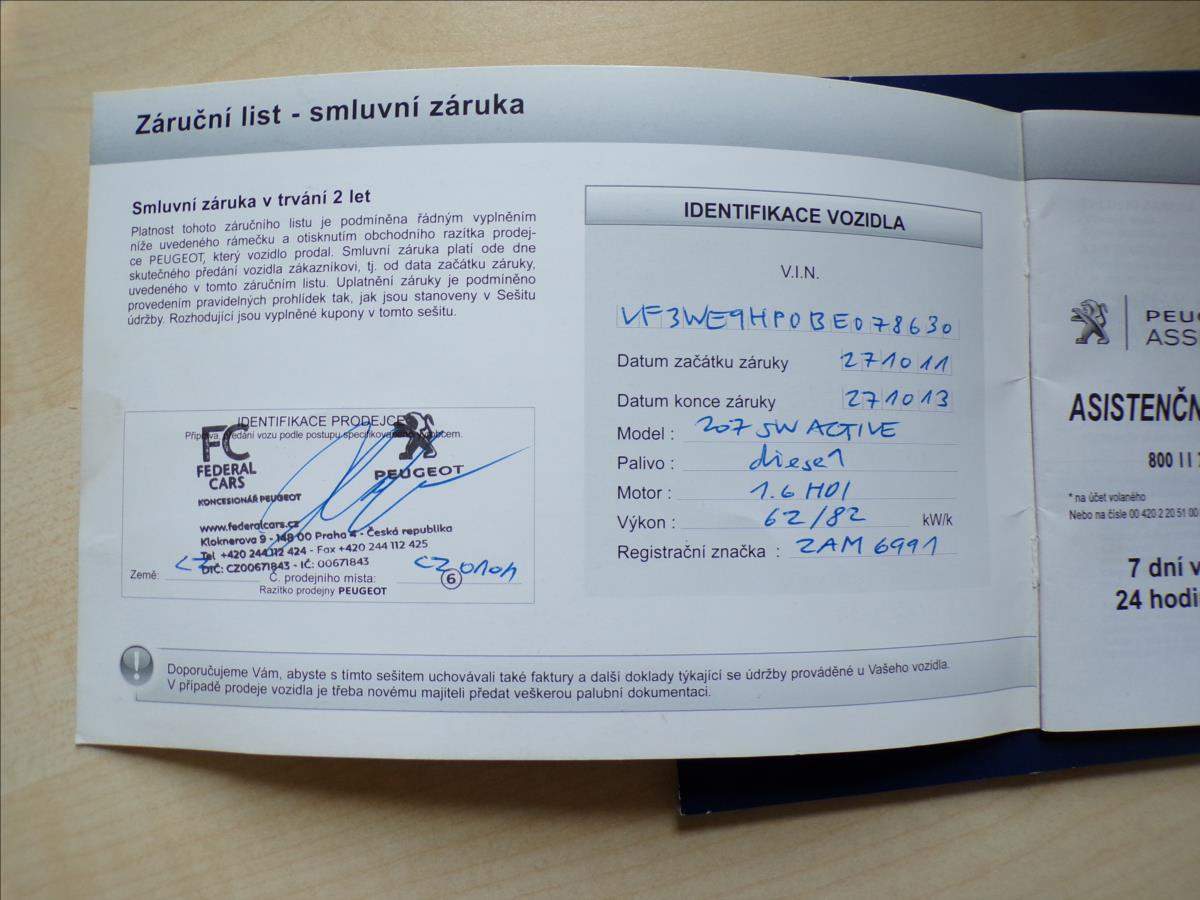 Záruční list - smluvní záruka
Smluvní záruka v trvání 2 let
Platnost tohoto záručního listu je podmíněna řádným vyplněním
níže uvedeného rámečku a otisknutím obchodního razítka prodej-
ce PEUGEOT, který vozidlo prodal. Smluvní záruka platí ode dne
skutečného předání vozidla zákazníkovi, tj. od data začátku záruky,
uvedeného v tomto záručním listu. Uplatnění záruky je podmíněno
provedením pravidelných prohlídek tak, jak jsou stanoveny v Sešitu
údržby. Rozhodující jsou vyplněné kupony v tomto sešitu.
IDENTIFIKACE PRODEJCE
předání vozu podle postupu
FC
FEDERAL
CARS
KONCESIONÁŘ PEUGEOT
PEUGEOT
www.federalcars.cz
Kloknerova 9 - 148 00 Praha 4 - Česká republika
Tel +420 244 112 424 - Fax +420 244 112 425
DIČ: CZ00671843 - IČ: 00671843
Země: CZ
Č. prodejního místa: CZ 0101
6
Razítko prodejny PEUGEOT
IDENTIFIKACE VOZIDLA
V.I.N.
VF3WE9HP0BE078630
Datum začátku záruky 271011
Datum konce záruky 271013
Model : 207 SW ACTIVE
Palivo : diesel
Motor : 1.6 HDI
Výkon : 62/82 kW/k
Registrační značka : 2AM 6991
Doporučujeme Vám, abyste s tímto sešitem uchovávali také faktury a další doklady týkající se údržby prováděné u Vašeho vozidla.
V případě prodeje vozidla je třeba novému majiteli předat veškerou palubní dokumentaci.
PEUG
ASS
ASISTENČN
800 11
* na účet volaného
Nebo na čísle 00 420 2 20 51 00
7 dní v
24 hodi